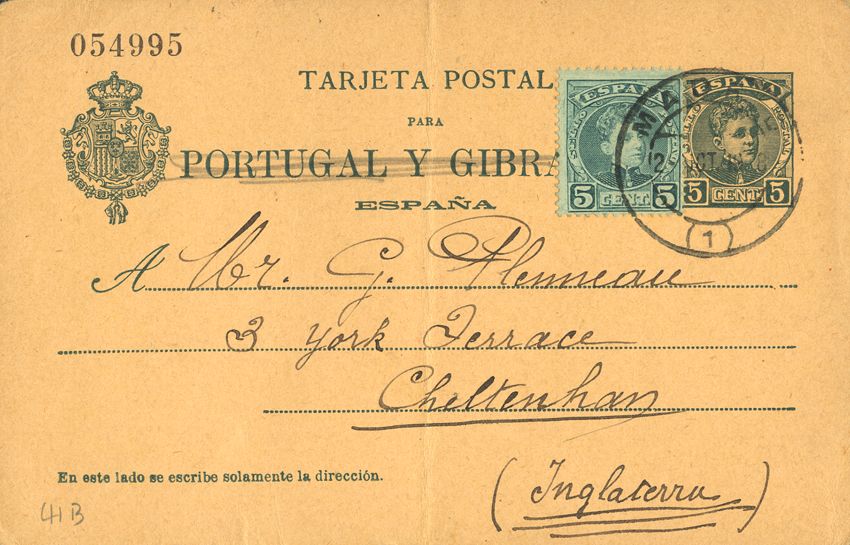 054995
TARJETA POSTAL
PARA
PORTUGAL Y GIBRA
ESPAÑA
ESPAÑA
5 CENT. 5
ESPAÑA
5 CENT. 5
1
A Mr. G. Plenneau
3 York Terrace
Cheltenham
(Inglaterra)
En este lado se escribe solamente la dirección.
41 B